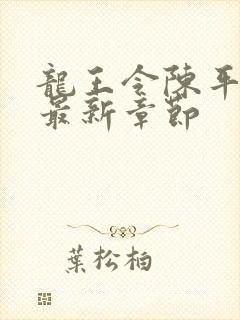 龍王令陳平
最新章節
葉松柏